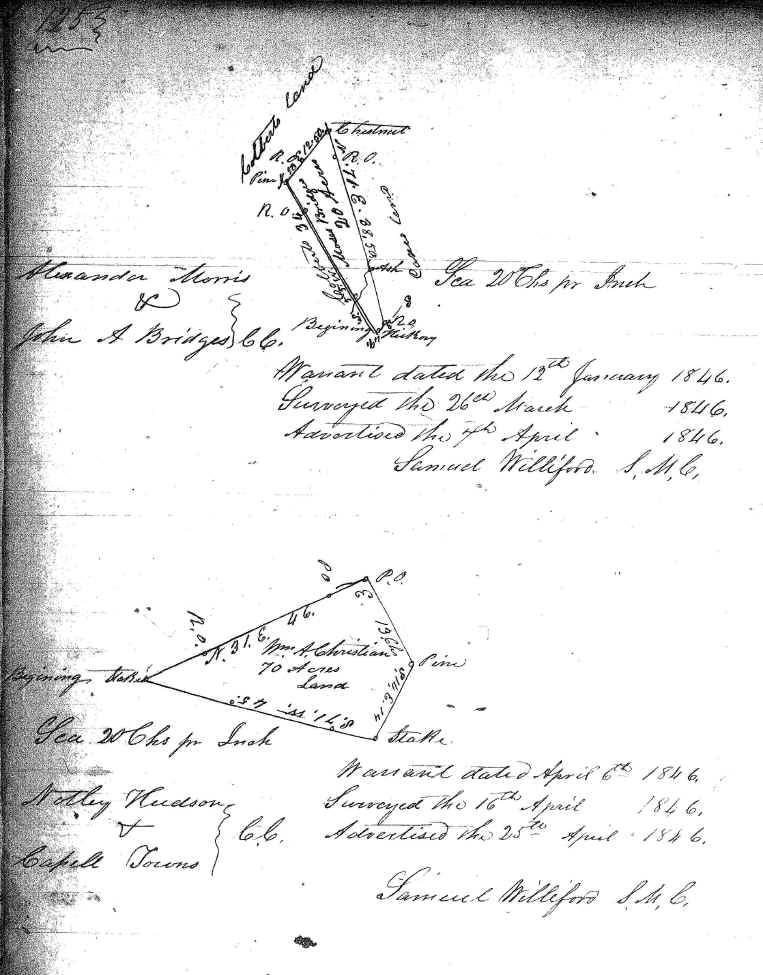 125
Colberts Land
Chestnut
R. O.
R. O.
Pine
R. O.
N. 71. E. 38,50
Moses Bridges
20 Acres
Ash
Begining
R. O.
Hickory
Sca 20 Chs pr Inch
Alexander Morris
&
John A Bridges } C.C.
Warrant dated the 12th January 1846.
Surveyed the 26th March 1846.
Advertised the 4th April 1846.
Samuel Williford. S. M. C.
P.O.
P.O.
R. O.
N. 31. E. 46.
Wm A. Christian
70 Acres
Land
Pine
S. 14. E. 14
Begining Stake
S. 71. W. 45
Stake.
Sca 20 Chs pr Inch
Warrant dated April 6th 1846.
Notley Hudson
&
Capell Towns } C.C.
Surveyed the 16th April 1846.
Advertised the 25th April 1846.
Samuel Williford S. M. C.